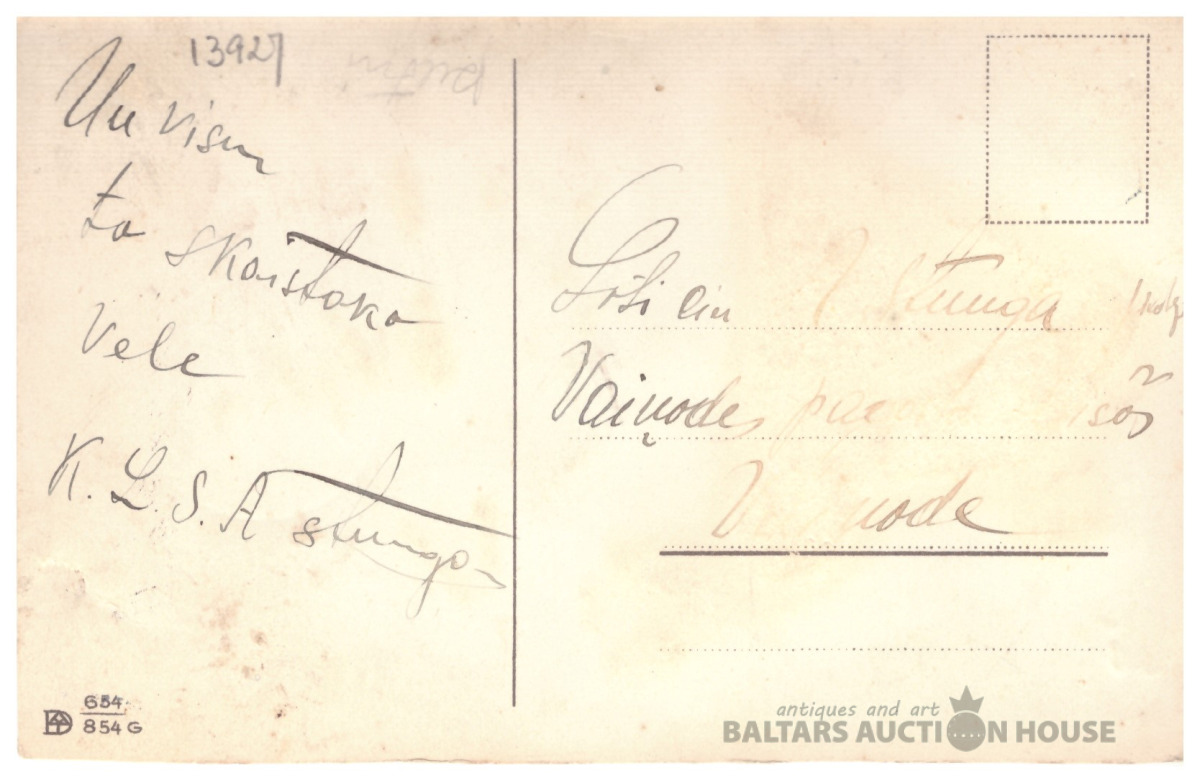 13927
Un visu
to skaistako
Vele
K. L. S. A stunga
I Stunga
Vaiņodes
Vaiņode
654
854 G
antiques and art
BALTARS AUCTION HOUSE